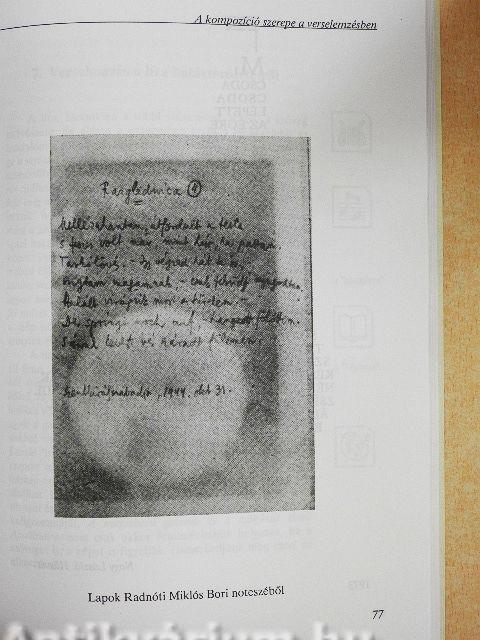 A kompozíció szerepe a verselemzésben
Razglednica (4)
Mellézuhantam, átfordult a teste
s feszes volt már, mint húr, ha pattan.
Tarkólövés. – Így végzed hát te is, –
súgtam magamnak, – csak feküdj nyugodtan.
Halált virágzik most a türelem. –
Der springt noch auf, – hangzott fölöttem.
Sárral kevert vér száradt fülemen.
Szentkirályszabadja, 1944. okt 31.
Lapok Radnóti Miklós Bori noteszéből
77
Antikvárium.hu